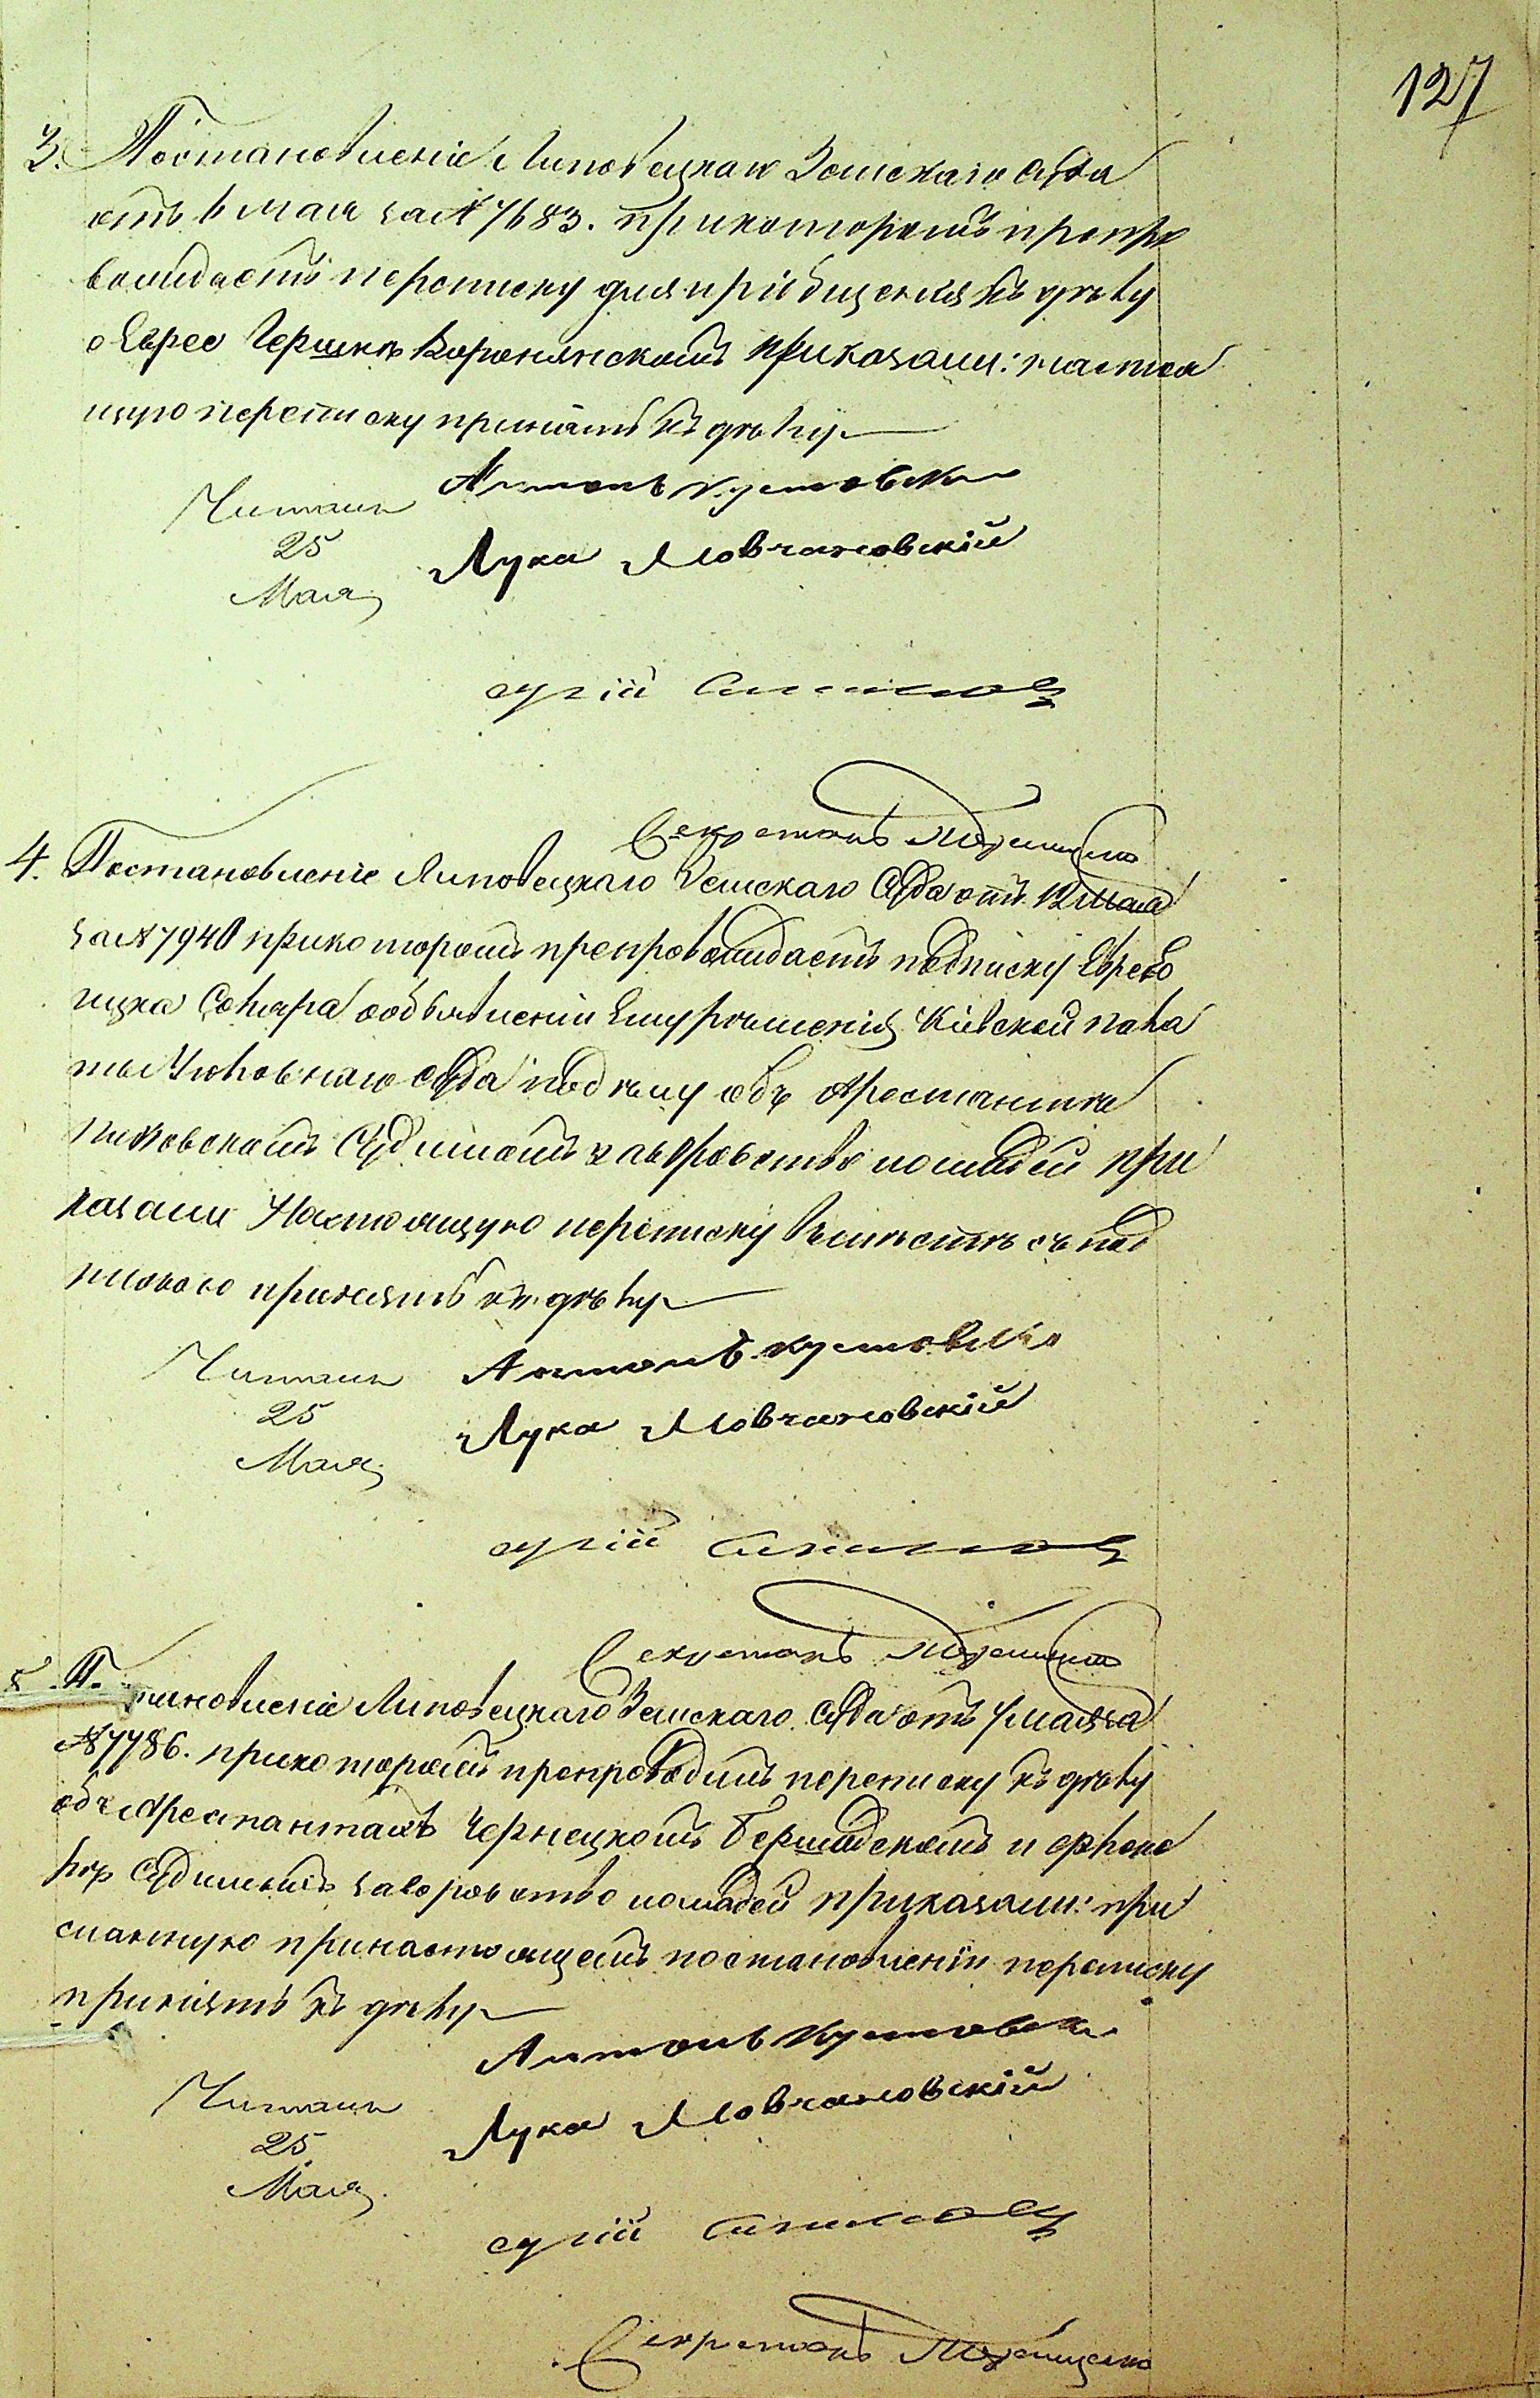 127
3. Постановленіе Липовецкаго Земскаго Суда
отъ 6 мая за № 7683. при которомъ препро
вождаетъ переписку для пріобщенія къ дѣлу
о Еврее Гершкѣ Воронянскомъ приказали: настоя
щую переписку принять къ дѣлу
Антонъ Кустовскі
Читалъ
25
Мая
Лука Мовчановскій
Секретарь
4. Постановленіе Липовецкаго Земскаго Суда отъ 12 мая
за № 7940 при которомъ препровождаетъ подписку Еврея
Сокира о объявленіи Ему рѣшенія Кіевской пала
ты Уголовнаго Суда по дѣлу объ Арестантѣ
Судимомъ за воровство лошадей при
казали Настоящую переписку вмѣстѣ съ под
пискою принять къ дѣлу
Читалъ
25
Мая
Антонъ Кустовскі
Лука Мовчановскій
Секретарь
5. П тановленіе Липовецкаго Земскаго Суда отъ 7 мая за
№ 7786. при которомъ препроводилъ переписку къ дѣлу
объ Арестантахъ Чернецкомъ Бершадскомъ и
Судимыхъ за воровство лошадей приказали: при
сланную при настоящемъ постановленіи переписку
принять къ дѣлу
Антонъ Кустовскі
Читалъ
25
Мая
Лука Мовчановскій
Секретарь